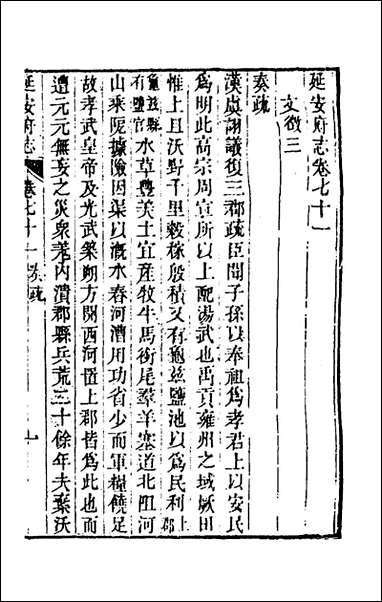 延安府志卷七十一
文徵三
奏疏
漢虞詡議復三郡疏臣聞子孫以奉祖爲孝君上以安民
爲明此高宗周宣所以上配湯武也禹貢雍州之域厥田
惟上且沃野千里穀稼殷積又有龜兹鹽池以爲民利上郡
龜兹縣有鹽官水草豐美土宜産牧牛馬銜尾羣羊塞道北阻河
山乘阨據險因渠以漑水舂河漕用功省少而軍糧饒足
故孝武皇帝及光武築朔方開西河置上郡皆爲此也而
遭元元無妄之災衆羌内潰郡縣兵荒二十餘年夫棄沃
延安府志 卷七十一 奏疏 一